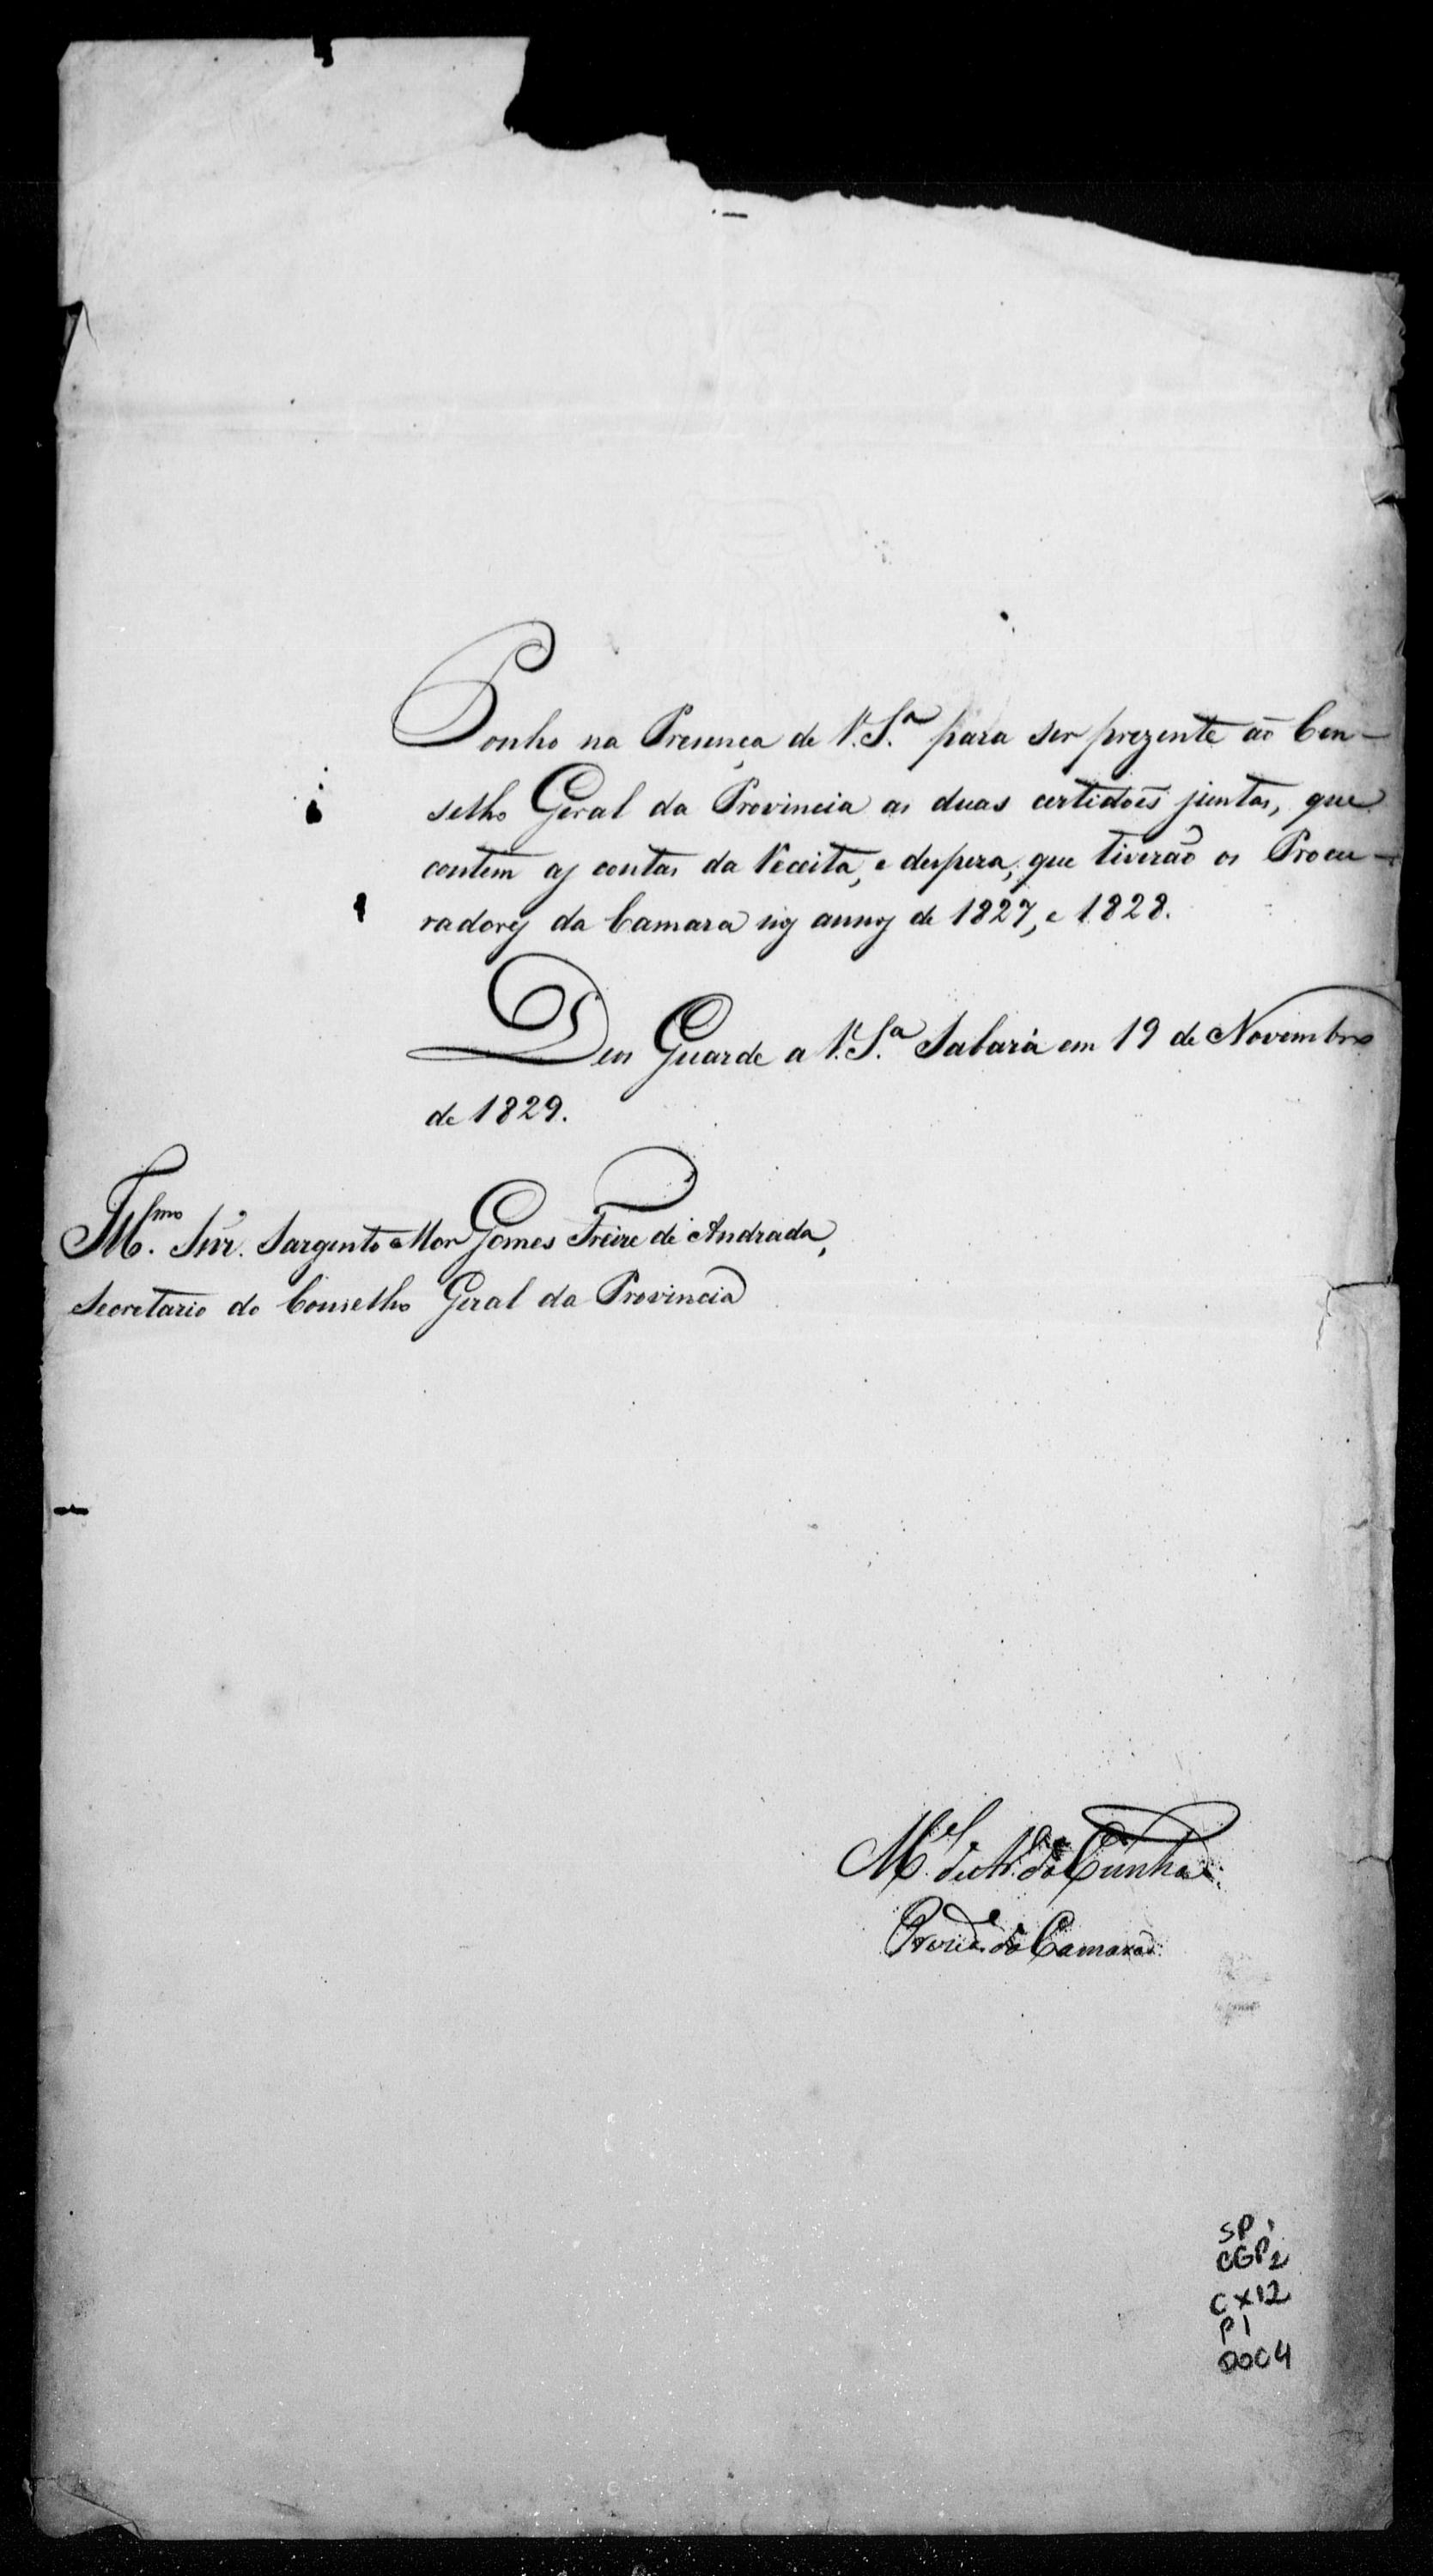 Ponho na Presença de V. S.ª para ser prezente aõ Con-
selho Geral da Provincia as duas certidoẽs juntas, que
contem as contas da Receita, e despeza, que tiverão os Procu-
radores da Camara nos annos de 1827, e 1828.
Deus Guarde a V. S.ª Sabará em 19 de Novembro
de 1829.
Ill.mo Snr. Sargento Mor Gomes Freire de Andrada,
Secretario do Conselho Geral da Provincia
M.el da Cunha
da Camara
SP 1
CGP 2
CX12
P1
DOC4